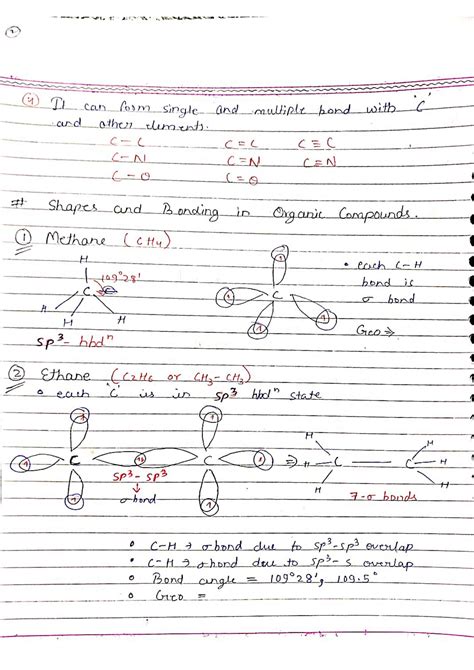 (4) It can form single and multiple bond with 'C'
and other elements.
C – C C = C C ≡ C
C – N C = N C ≡ N
C – O C = O
# Shapes and Bonding in Organic Compounds.
① Methane (CH4)
H
109°28'
C
H H H
sp³- hbdⁿ
1
1 C 1
1
• each C–H
bond is
σ bond
Geo ⇒
② Ethane (C2H6 or CH3–CH3)
• each 'C' is in sp³ hbdⁿ state
1 1
1 C 1 1 C 1 ⇒
1 1
sp³- sp³
↓
σ bond
H H
H C C H
H H
7-σ bonds
• C–H → σ bond due to sp³-sp³ overlap
• C–H → σ bond due to sp³-s overlap
• Bond angle = 109°28', 109.5°
• Geo =